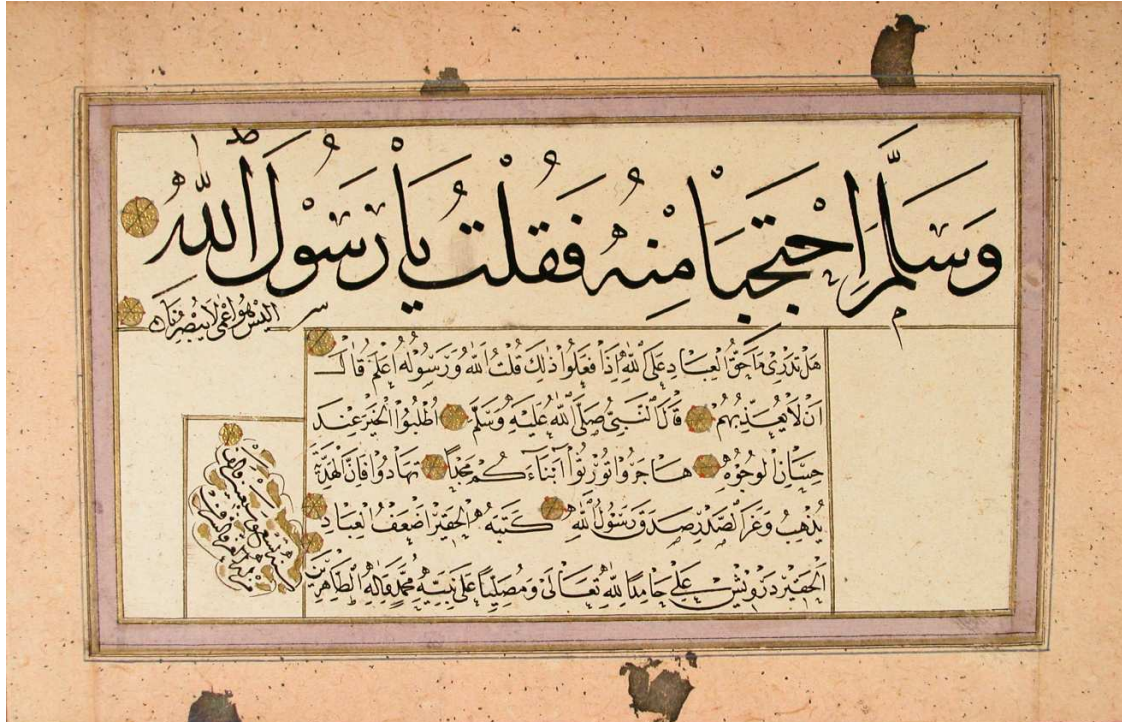 وَسَلَّمَ اِحْتَجِبَا مِنْهُ فَقُلْتُ يَا رَسُوْلَ اللّٰهِ
اليس هو اعمى لا يبصرنا
هَلْ تَدْرِى مَا حَقُّ الْعِبَادِ عَلَى اللّٰهِ اِذَا فَعَلُوا ذٰلِكَ قُلْتُ اَللّٰهُ وَرَسُولُهُ اَعْلَمُ قَالَ
اَنْ لَا يُعَذِّبَهُمْ قَالَ النَّبِىُّ صَلَّى اللّٰهُ عَلَيْهِ وَسَلَّمَ اُطْلُبُوا الْخَيْرَ عِنْدَ
حِسَانِ الْوُجُوْهِ هَاجِرُوا تُوْرِثُوْا اَبْنَاءَكُمْ مَجْدًا تَهَادُوْا فَاِنَّ الْهَدِيَّةَ
يُذْهِبُ وَغَرَ الصَّدْرِ صَدَقَ رَسُوْلُ اللّٰهِ كَتَبَهُ الْحَقِيْرُ اَضْعَفُ الْعِبَادِ
اَلْحَقِيْرُ دَرْوِيْشْ عَلِي حَامِدًا لِلّٰهِ تَعَالٰى وَمُصَلِّيًا عَلٰى نَبِيِّهِ مُحَمَّدٍ وَاٰلِهِ الطَّاهِرِيْنَ